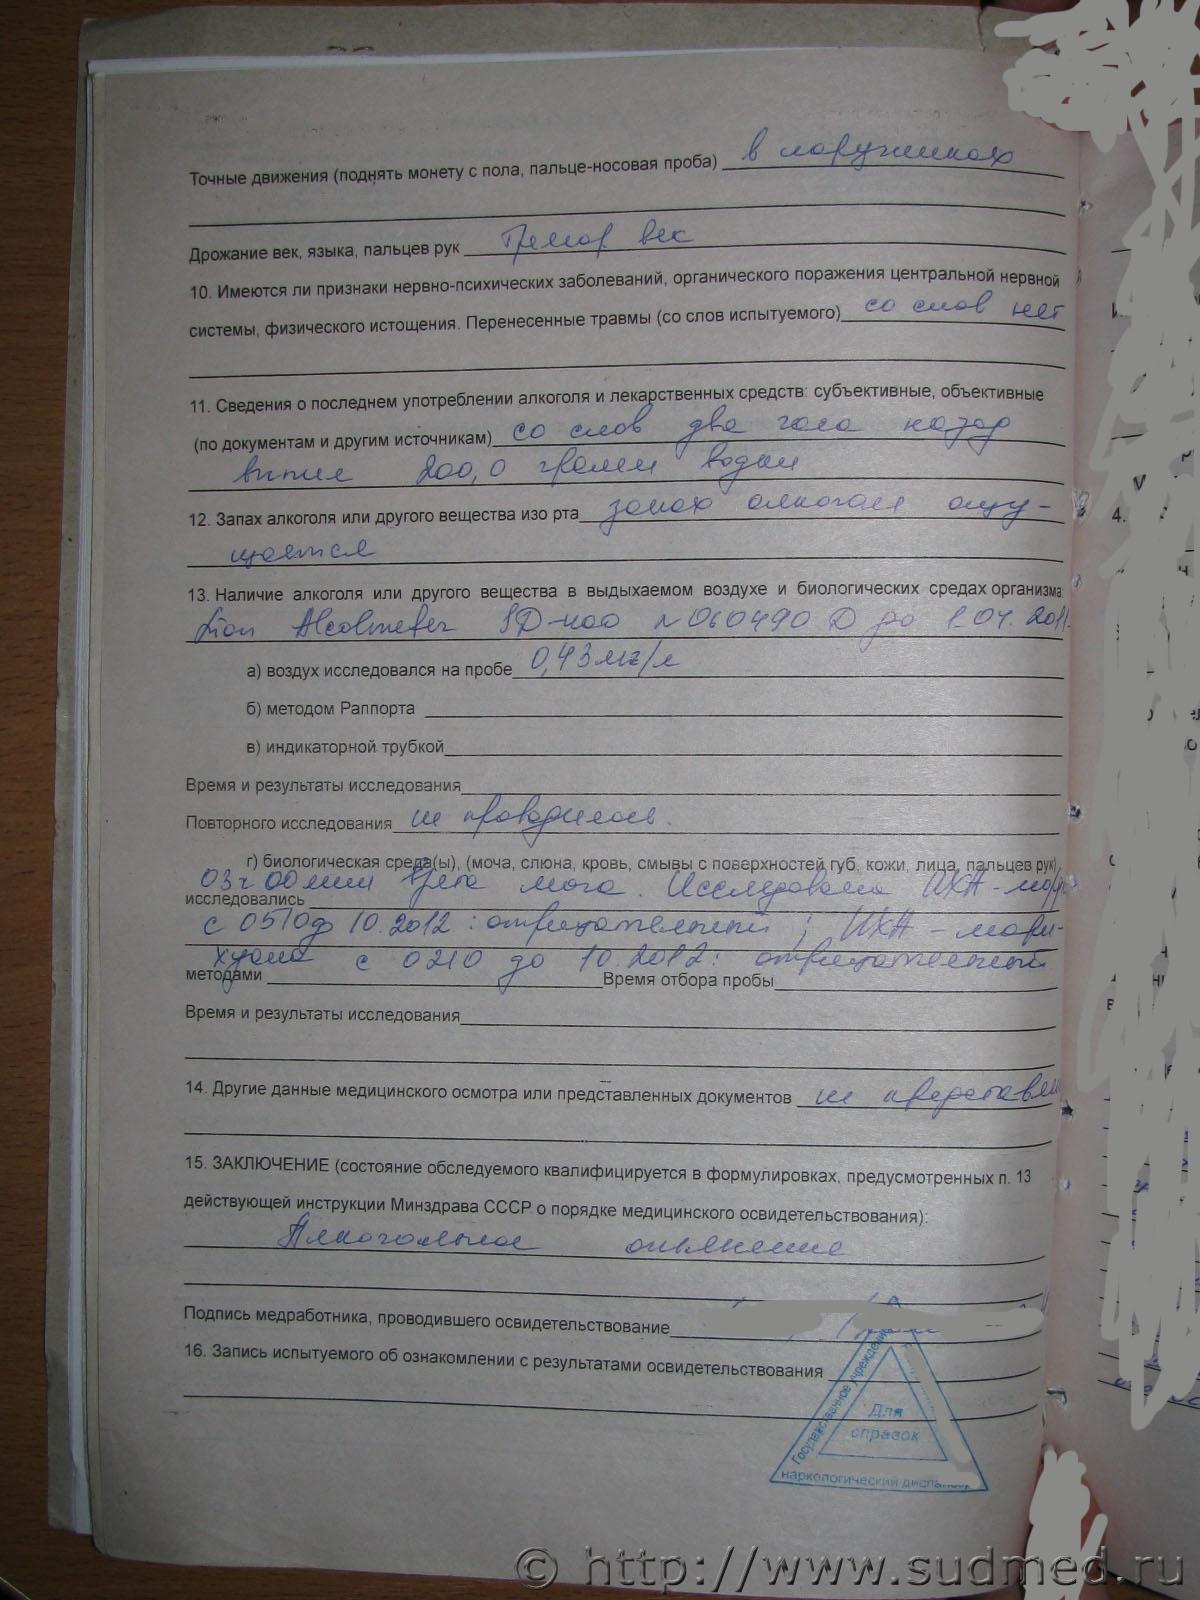 Точные движения (поднять монету с пола, пальце-носовая проба) в наручниках
Дрожание век, языка, пальцев рук Тремор век
10. Имеются ли признаки нервно-психических заболеваний, органического поражения центральной нервной
системы, физического истощения. Перенесенные травмы (со слов испытуемого) со слов нет
11. Сведения о последнем употреблении алкоголя и лекарственных средств: субъективные, объективные
(по документам и другим источникам) со слов два часа назад
выпил 200,0 грамм водки
12. Запах алкоголя или другого вещества изо рта запах алкоголя ощу-
щается
13. Наличие алкоголя или другого вещества в выдыхаемом воздухе и биологических средах организма:
Lion Alcolmeter SD-400 N 060490 D до 1.04.2011
а) воздух исследовался на пробе 0,43 мг/л
б) методом Раппорта
в) индикаторной трубкой
Время и результаты исследования
Повторного исследования не проводилось.
г) биологическая среда(ы), (моча, слюна, кровь, смывы с поверхностей губ, кожи, лица, пальцев рук)
03ч 00мин взята моча. Исследована ИХА-
исследовались
с 0510 до 10.2012: отрицательный; ИХА-мари-
хуана с 0210 до 10.2012: отрицательный
методами Время отбора пробы
Время и результаты исследования
14. Другие данные медицинского осмотра или представленных документов не представлен
15. ЗАКЛЮЧЕНИЕ (состояние обследуемого квалифицируется в формулировках, предусмотренных п. 13
действующей инструкции Минздрава СССР о порядке медицинского освидетельствования):
Алкогольное опьянение
Подпись медработника, проводившего освидетельствование
16. Запись испытуемого об ознакомлении с результатами освидетельствования
Государственное учреждение
Для
справок
наркологический
4.
© http://www.sudmed.ru